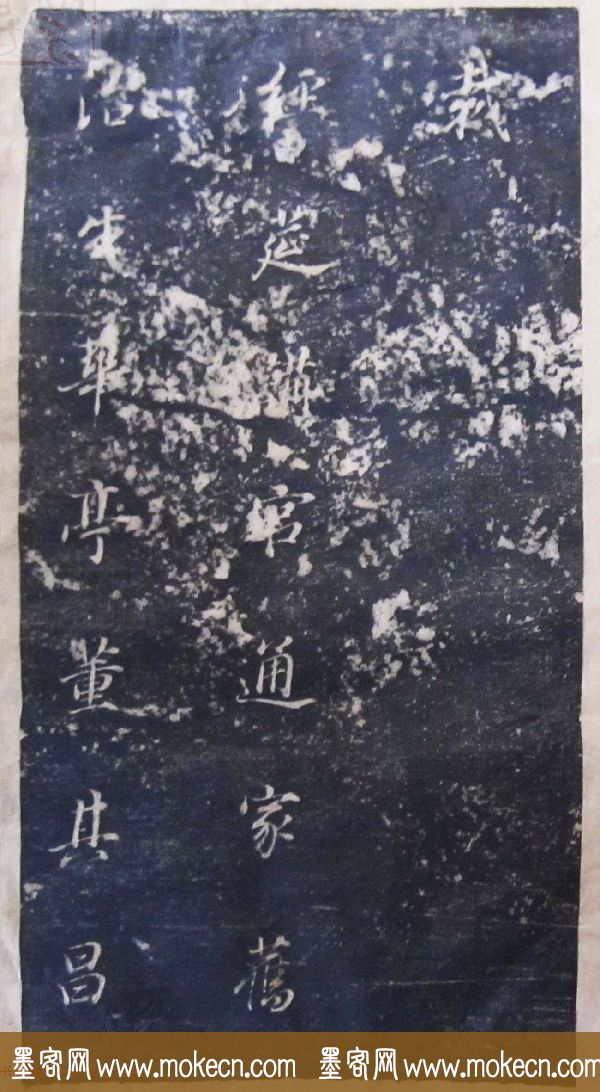 經筵講官通家舊
治生華亭董其昌
墨客网 www.mokecn.com 墨客网 www.mokecn.com